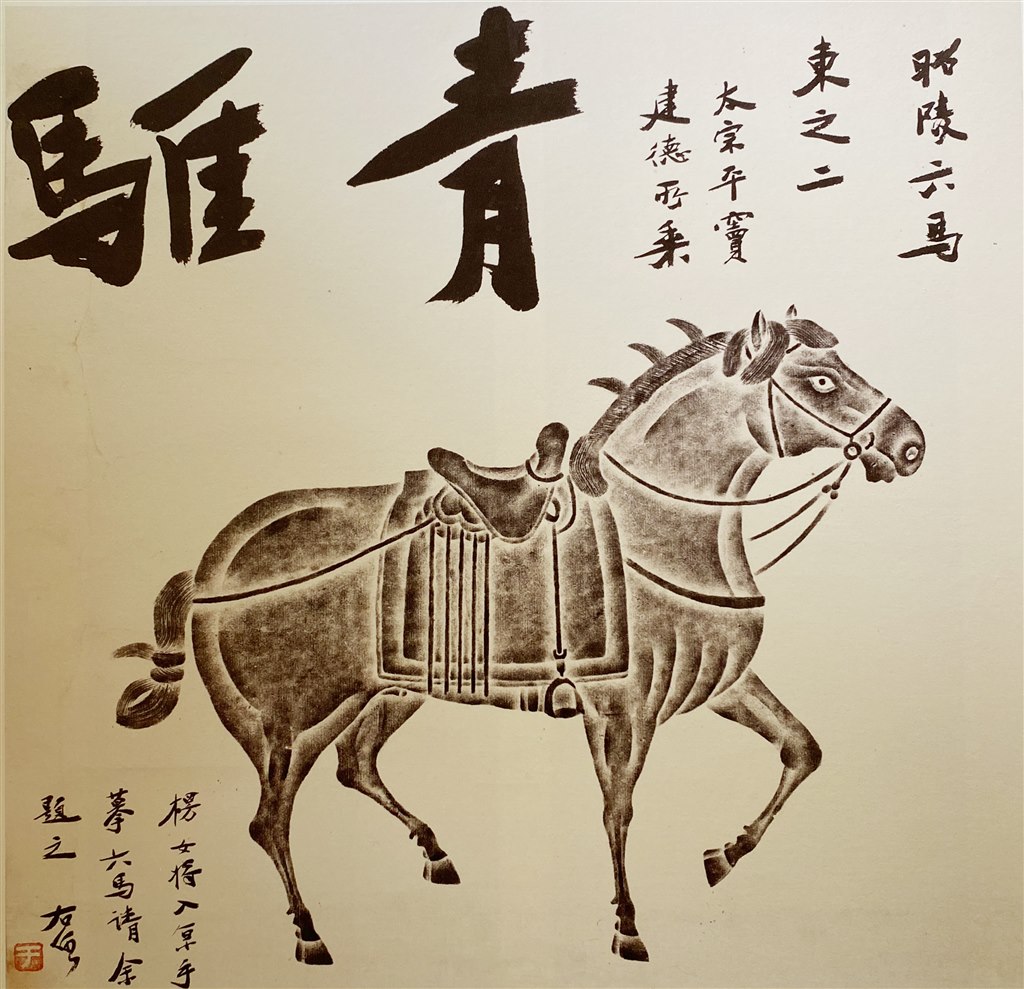 昭陵六馬
東之二
太宗平竇
建德所乘
青騅
楞女將入京手
摹六馬請余
題之 右任